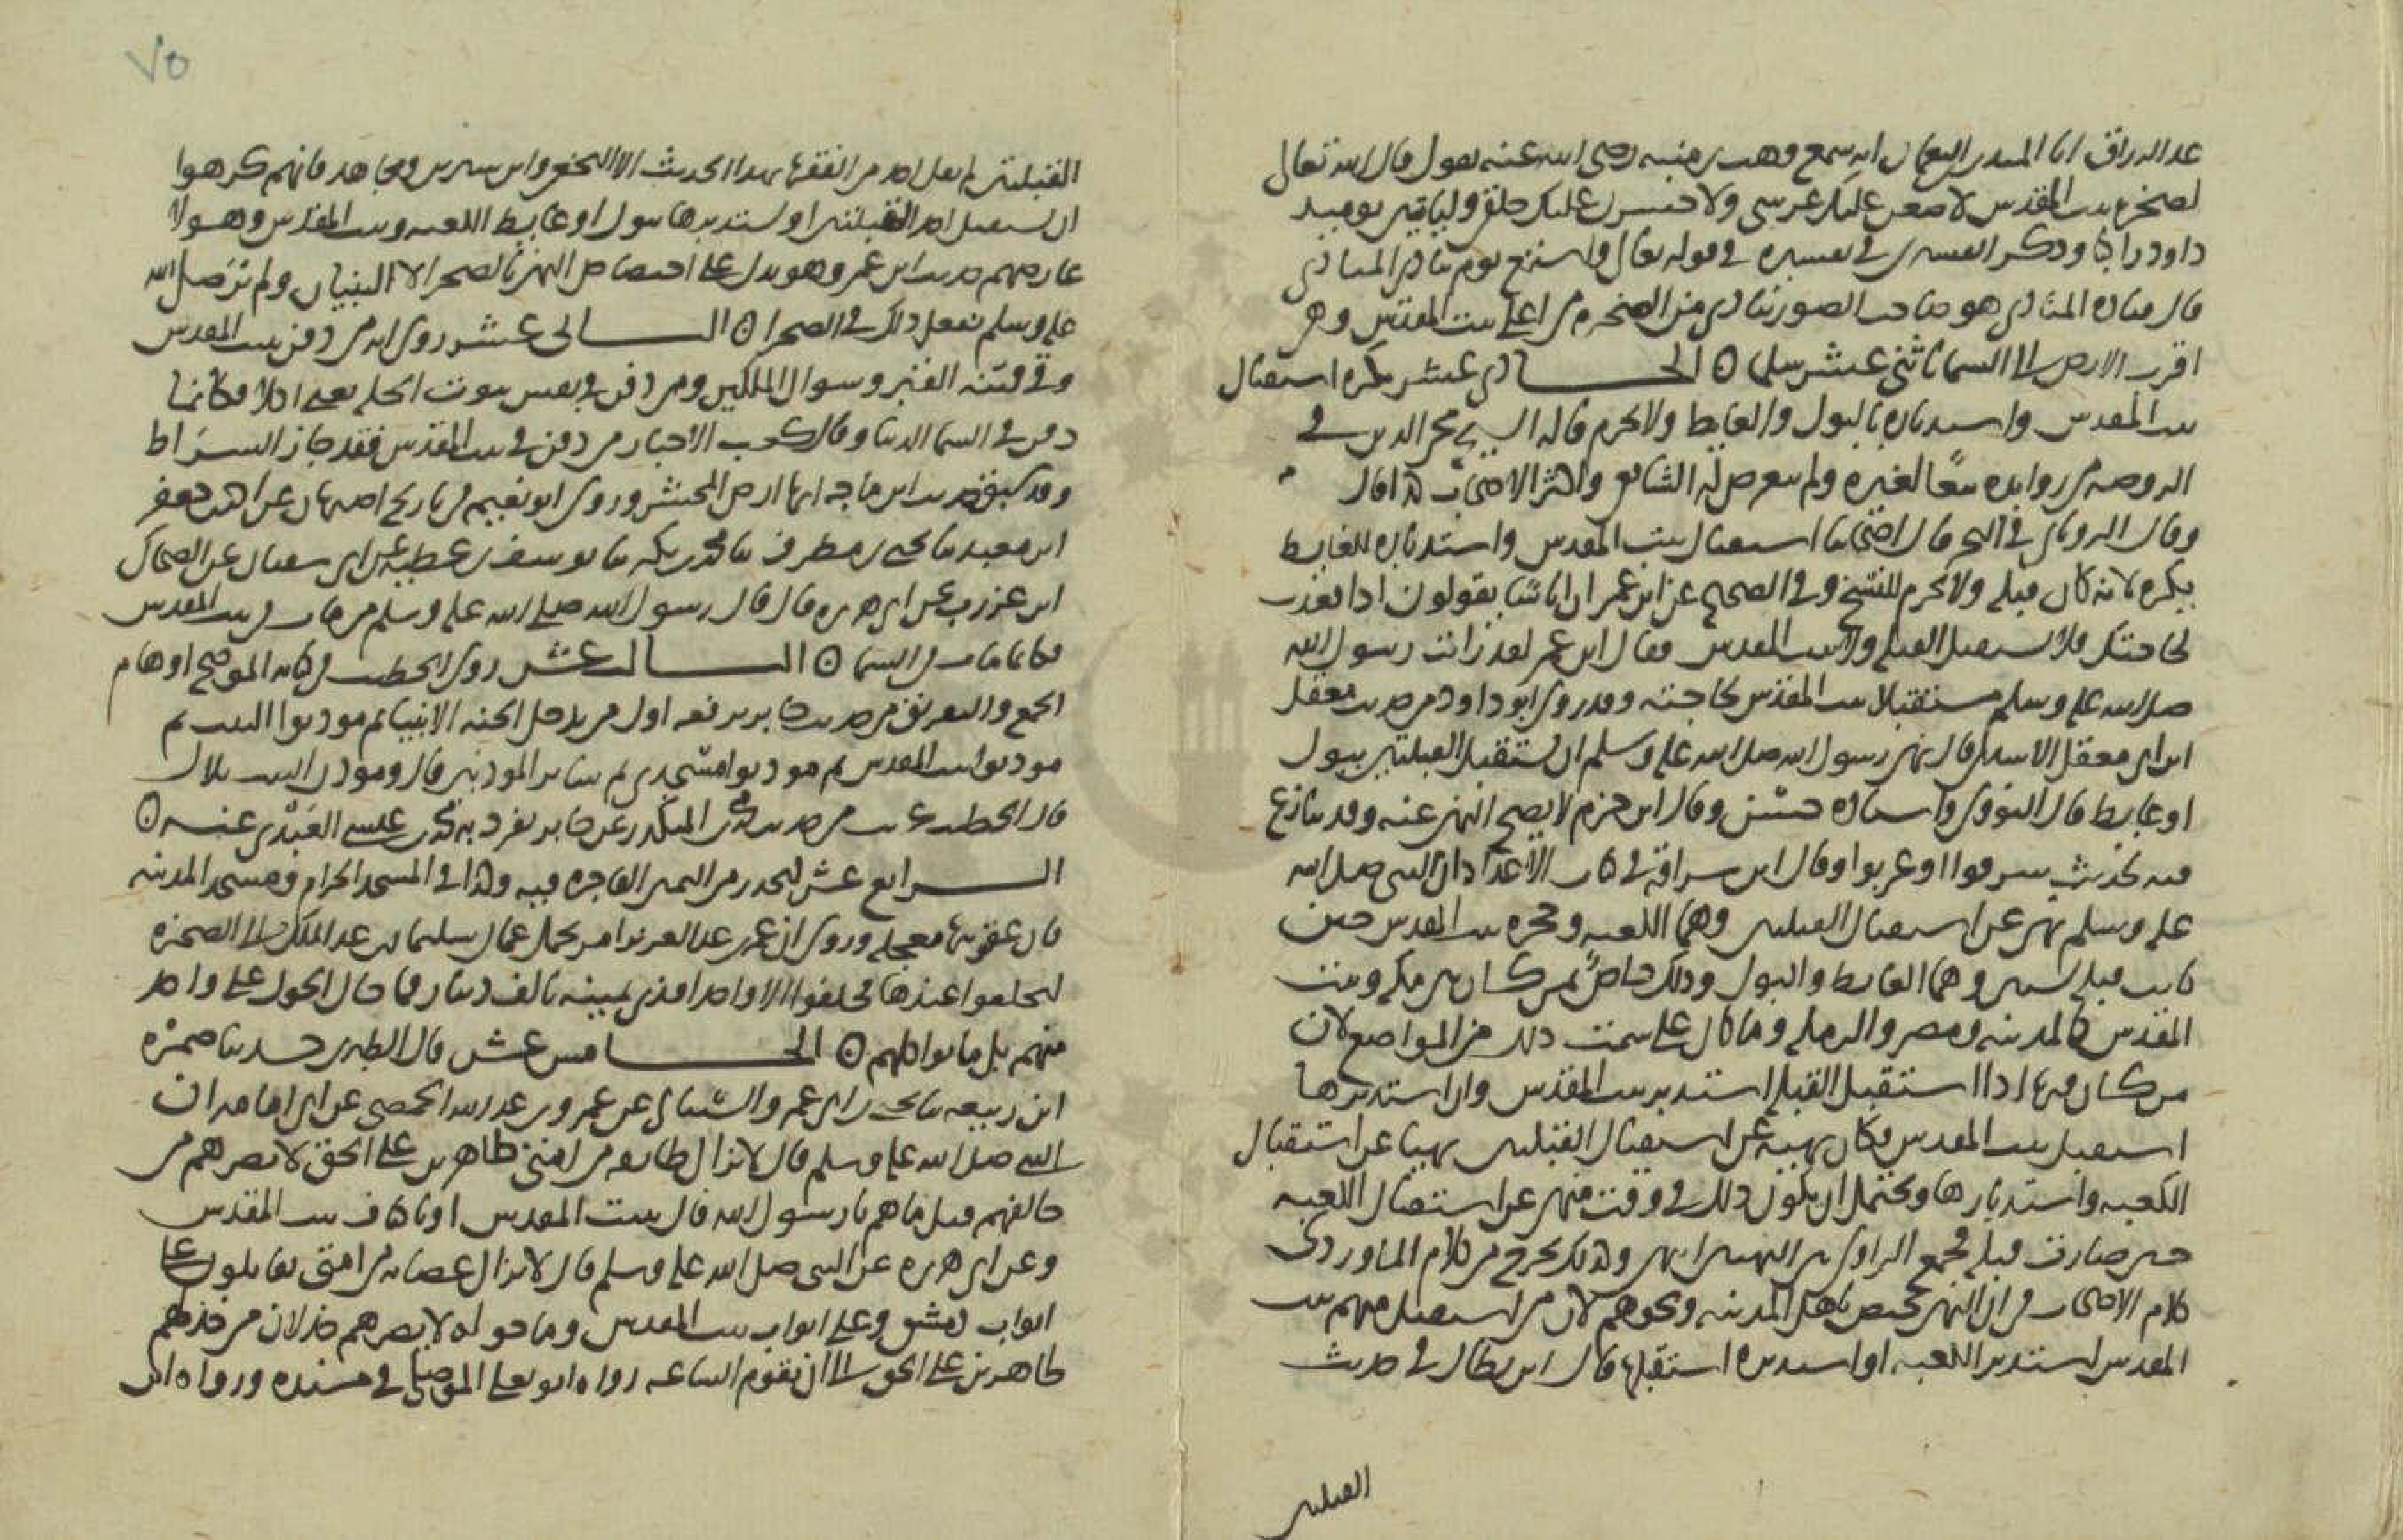 عبد الرزاق انا المنذر بن النعمان انه سمع وهب بن منبه رضي الله عنه يقول قال الله تعالى
لصخرة بيت المقدس لاضعن عليك عرشي ولاحشرن عليك خلقي ولياتين يوميذ
داود راكبا وذكر القشيري في تفسيره في قوله تعالى واستمع يوم ينادي المنادي
قال قتادة المنادي هو صاحب الصور ينادي من الصخرة من اعلى بيت المقدس وهي
اقرب الارض الى السما باثني عشر ميلا ⊙ الحادي عشر يكره استقبال
بيت المقدس واستدباره بالبول والغايط ولا يحرم قاله الشيخ محي الدين في
الروضة من زوايده تبعا لغيره ولم يتعرض له الشافعي واكثر الاصحاب كذا قال
وقال الروياني في البحر قال اصحابنا استقبال بيت المقدس واستدباره للغايط
يكره لانه كان قبلة ولا يحرم للنسخ وفي الصحيح عن ابن عمر ان اناسا يقولون اذا قعدت
لحاجتك فلا تستقبل القبلة ولا بيت المقدس فقال ابن عمر لقد رايت رسول الله
صلى الله عليه وسلم مستقبلا بيت المقدس لحاجته وقد روى ابو داود من حديث معقل
ابن ابي معقل الاسدي قال نهى رسول الله صلى الله عليه وسلم ان نستقبل القبلتين ببول
او غايط قال النووي واسناده حسن وقال ابن حزم لا يصح النهي عنه وقد ينازع
فيه بحديث شرقوا او غربوا وقال ابن سراقة في كتاب الاعداد ان النبي صلى الله
عليه وسلم نهى عن استقبال القبلتين وهما الكعبة وصخرة بيت المقدس حين
كانت قبلة لشيين وهما الغايط والبول وذلك خاص بمن كان بين مكة وبيت
المقدس كالمدينة ومصر والرملة وما كان على سمت ذلك من المواضع لان
من كان فيها اذا استقبل القبلة استدبر بيت المقدس وان استدبرها
استقبل بيت المقدس فكان نهيه عن استقبال القبلتين نهيا عن استقبال
الكعبة واستدبارها ويحتمل ان يكون ذلك في وقت نهي عن استقبال الكعبة
حين صارت قبلة فجمع الراوي بين النهيين وكذلك يخرج من كلام الماوردي
كلام الاصحاب في ان النهي مختص باهل المدينة ونحوهم لان من استقبل منهم بيت
المقدس استدبر الكعبة او استدبره استقبلها قال ابن بطال في حديث
القبلتين
٧٥
القبلتين لم يقل احد من الفقها بهذا الحديث الا النخعي وابن سيرين ومجاهد فانهم كرهوا
ان يستقبل احد القبلتين او يستدبرها ببول او غايط الكعبة وبيت المقدس وهولا
عارضهم حديث ابن عمر وهو يدل على اختصاص النهي بالصحرا لا البنيان ولم نر صلى الله
عليه وسلم يفعل ذلك في الصحرا ⊙ الثاني عشر روي انه من دفن ببيت المقدس
وقي فتنة القبر وسوال الملكين ومن دفن في بعض بيوت الحلم يعني ايليا فكانما
دفن في السما الدنيا وقال كعب الاحبار من دفن في بيت المقدس فقد جاز السراط
وقد سبق حديث ابن ماجه انها ارض المحشر وروى ابو نعيم في تاريخ اصبهان عن جعفر
ابن معبد ثنا يحيى بن مطرف ثنا محمد بن بكير ثنا يوسف بن عطية عن ابي سفيان عن الضحاك
ابن عرزب عن ابي هريرة قال قال رسول الله صلى الله عليه وسلم من مات في بيت المقدس
فكانما مات في السما ⊙ الثالث عشر روى الخطيب في كتابه الموضح اوهام
الجمع والتفريق من حديث جابر يرفعه اول من يدخل الجنة الانبيا ثم موذنوا البيت ثم
موذنوا بيت المقدس ثم موذنوا مسجدي ثم ساير الموذنين قال وموذن البيت بلال
قال الخطيب غريب من حديث محمد بن المنكدر عن جابر تفرد به محمد بن عيسى العبدي عنه ⊙
الرابع عشر ليحذر من اليمين الفاجرة فيه وكذا في المسجد الحرام ومسجد المدينة
فان عقوبتها معجلة وروي ان عمر بن عبد العزيز امر بحمل عمال سليمان بن عبد الملك الى الصخرة
ليحلفوا عندها فحلفوا الا واحدا فدى يمينه بالف دينار فما حال الحول على واحد
منهم بل ماتوا كلهم ⊙ الخامس عشر قال الطبري حدثنا ضمرة
ابن ربيعة ثنا يحيى بن ابي عمرو الشيباني عن عمرو بن عبد الله الحمصي عن ابي امامة ان
النبي صلى الله عليه وسلم قال لا تزال طايفة من امتي ظاهرين على الحق لا يضرهم من
خالفهم قيل فما هم يا رسول الله قال بيت المقدس او باكناف بيت المقدس
وعن ابي هريرة عن النبي صلى الله عليه وسلم قال لا تزال عصابة من امتي يقاتلون على
ابواب دمشق وعلى ابواب بيت المقدس وما حوله لا يضرهم خذلان من خذلهم
ظاهرين على الحق الى ان تقوم الساعة رواه ابو يعلى الموصلي في مسنده ورواه ابن